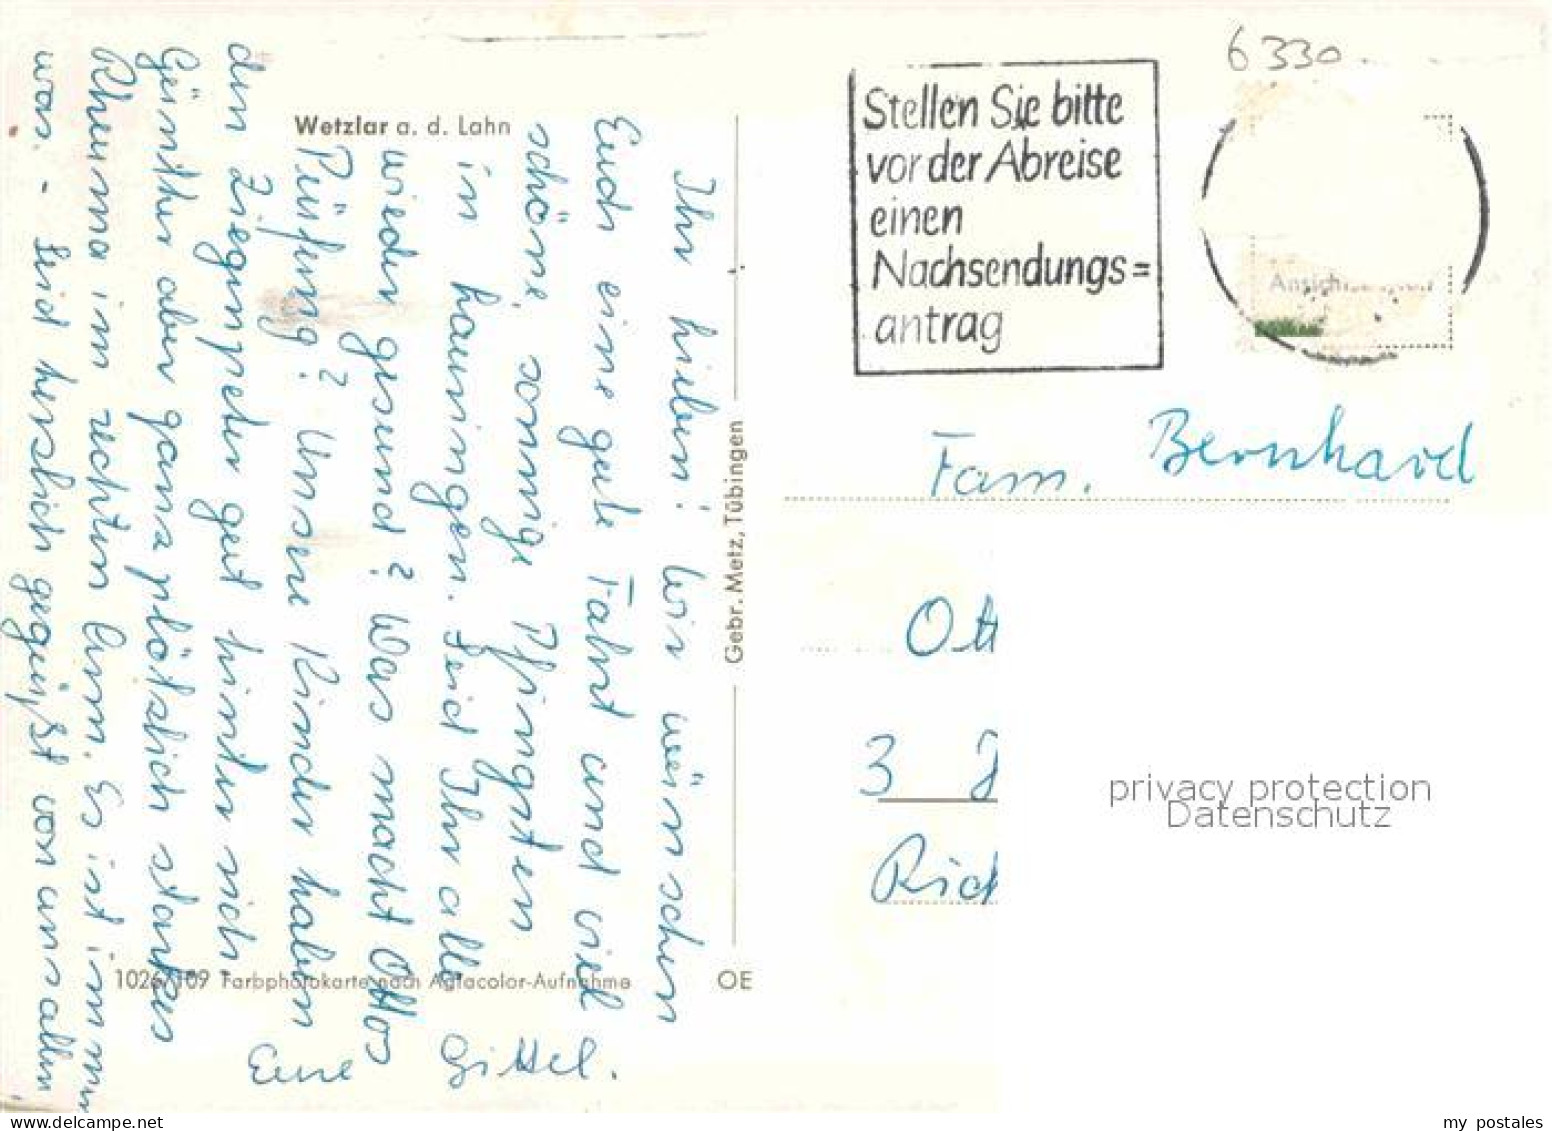 6330
Wetzlar a. d. Lahn
Stellen Sie bitte
vor der Abreise
einen
Nachsendungs=
antrag
Ihr lieben! Wir wünschen
Euch eine gute Fahrt und viel
schöne, sonnige Pfingsten
in Seid Ihr alle
wieder gesund? Was macht Ottos
Prüfung? Unsere Kinder haben
den Ziegenpeter gut hinter sich
Günther aber ganz plötzlich starkes
Rheuma im rechten Arm. Es ist immer
was. - Seid herzlich gegrüßt von uns allen
Eure Gittel.
Gebr. Metz, Tübingen
1026/109 Farbphotokarte nach Agfacolor-Aufnahme OE
Fam. Bernhard
Ott
3
Rich
privacy protection
Datenschutz
my postales